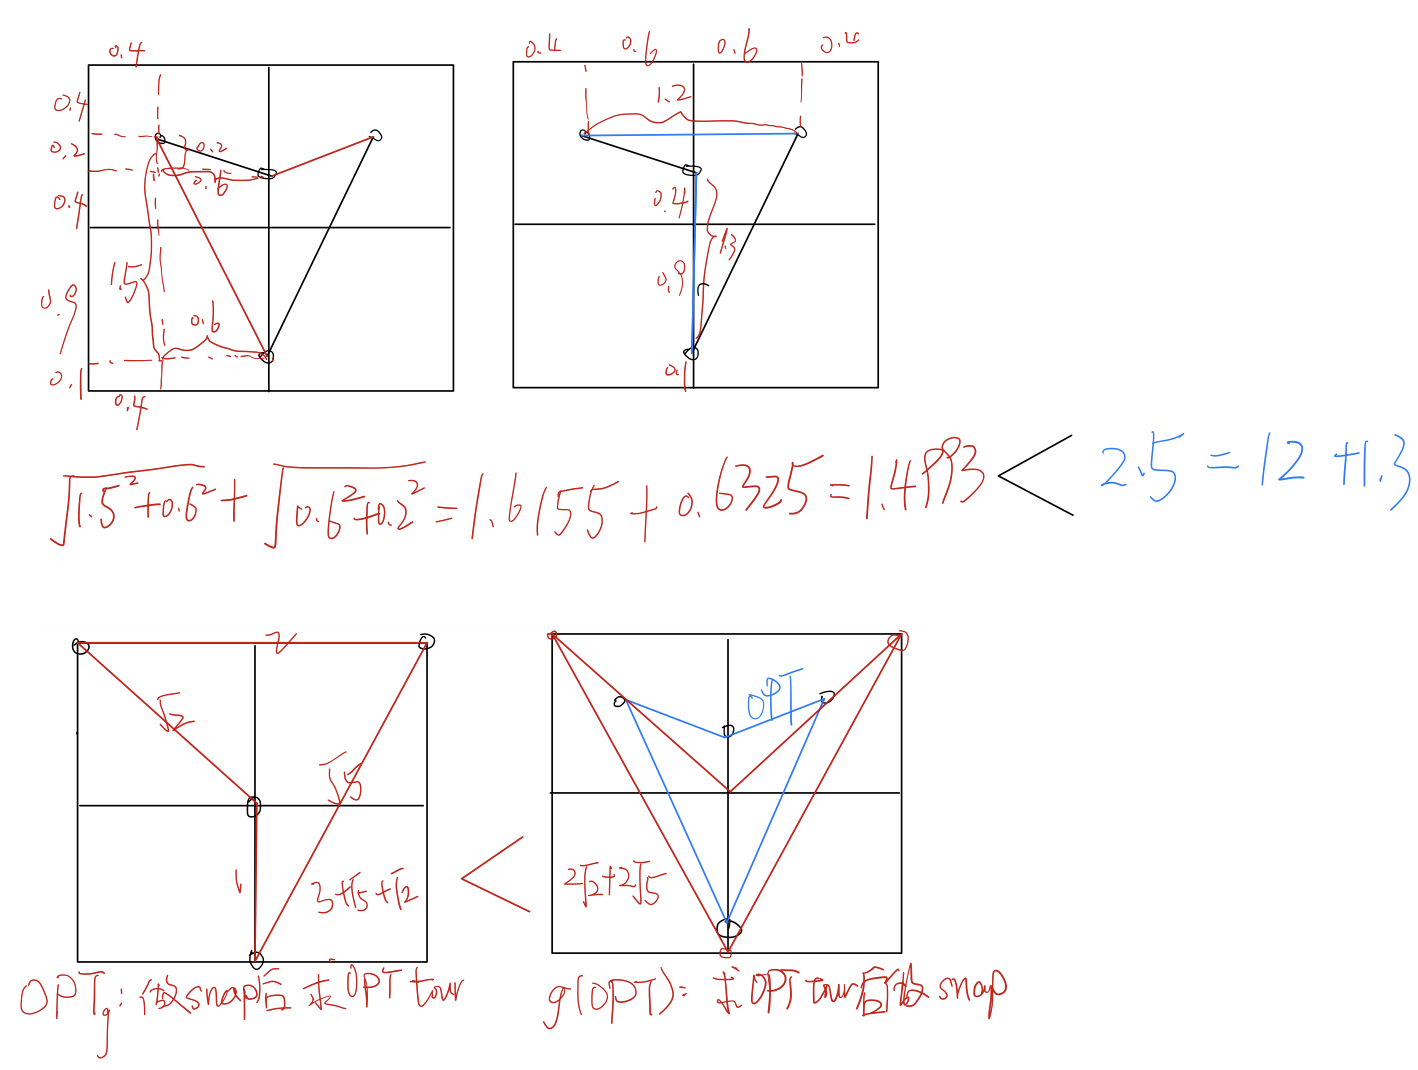 0.4
0.4
0.2
0.4
0.9
0.1
0.4
0.2
0.6
1.5
0.6
0.4 0.6 0.6 0.4
1.2
0.4
1.3
0.9
0.1
√1.5²+0.6² + √0.6²+0.2² = 1.6155 + 0.6325 = 1.4993 < 2.5 = 12 + 1.3
2
√2
√5
1
3+√5+√2
<
OPT
2√2+2√5
OPTg: 做snap后求OPT tour
g(OPT): 求OPT tour后做snap